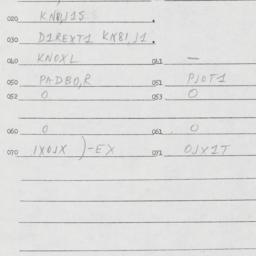 020 KN8,J15 .
030 D1REXT1 KM81,J1 .
040 KNOXL 041 —
050 PADBO,R 051 PJOT1
052 0 053 0
060 0 061 0
070 1XOJX )-EX 071 OJX1T